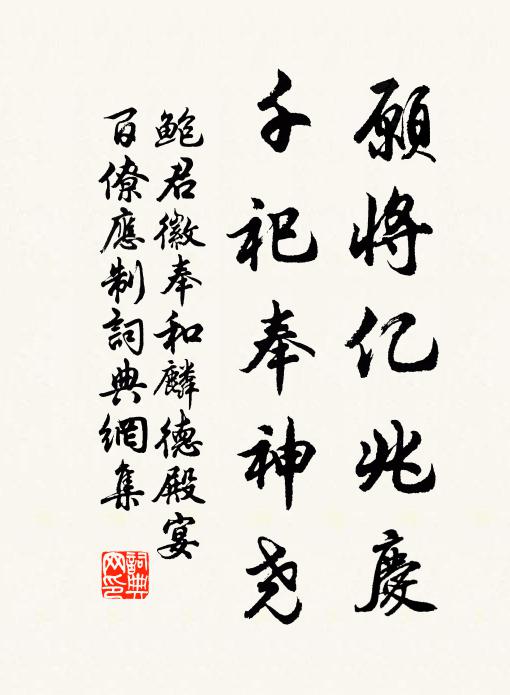 願將亿兆慶
千祀奉神尧
鲍君徽奉和麟德殿宴
百僚應制詞典網集
詞典网印